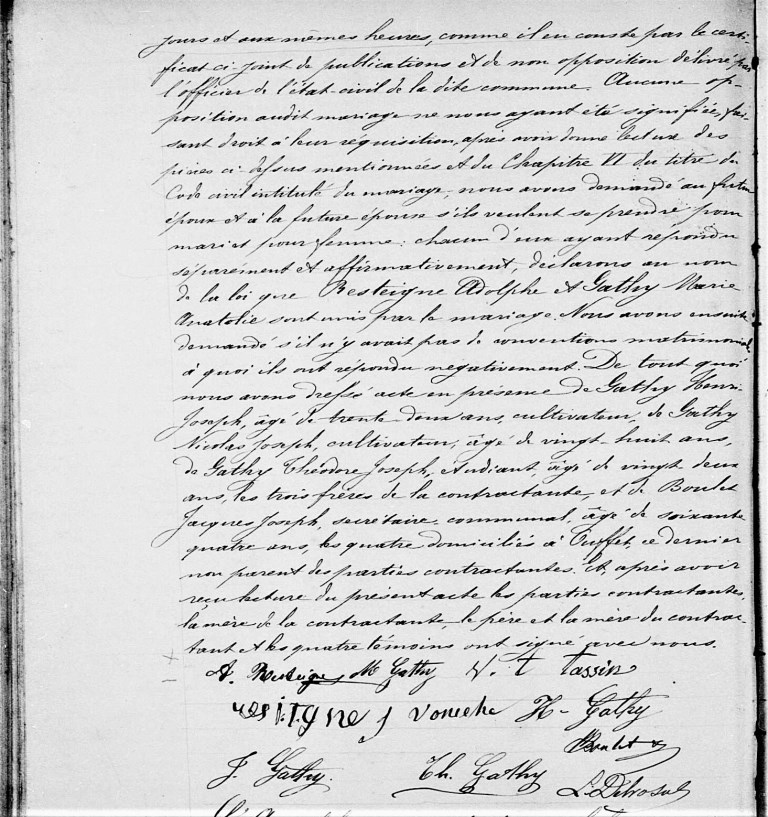 jours et aux mêmes heures, comme il en conste par le certi-
ficat ci-joint de publications et de non opposition délivré par
l'officier de l'état civil de la dite commune. Aucune op-
position audit mariage ne nous ayant été signifiée, fai-
sant droit à leur réquisition, après avoir donné lecture des
pièces ci-dessus mentionnées et du Chapitre VI du titre du
Code civil intitulé du mariage, nous avons demandé au futur
époux et à la future épouse s'ils veulent se prendre pour
mari et pour femme: chacun d'eux ayant répondu
séparément et affirmativement, déclarons au nom
de la loi que Besteigne Adolphe et Gathy Marie
Anatolie sont unis par le mariage. Nous avons ensuite
demandé s'il n'y avait pas de conventions matrimoniales
à quoi ils ont répondu négativement. De tout quoi
nous avons dressé acte en présence de Gathy Henri
Joseph, âgé de trente deux ans, cultivateur, de Gathy
Nicolas Joseph, cultivateur, âgé de vingt-huit ans,
de Gathy Théodore Joseph, étudiant, âgé de vingt deux
ans, les trois frères de la contractante, et de Boulet
Jacques Joseph, secrétaire communal, âgé de soixante
quatre ans, les quatre domiciliés à Ouffet, ce dernier
non parent des parties contractantes. Et, après avoir
reçu lecture du présent acte les parties contractantes,
la mère de la contractante, le père et la mère du contrac-
tant et les quatre témoins ont signé avec nous.
A. Besteigne M Gathy V. t Tassin
J Voneche H. Gathy
Boulet
J. Gathy. Th. Gathy